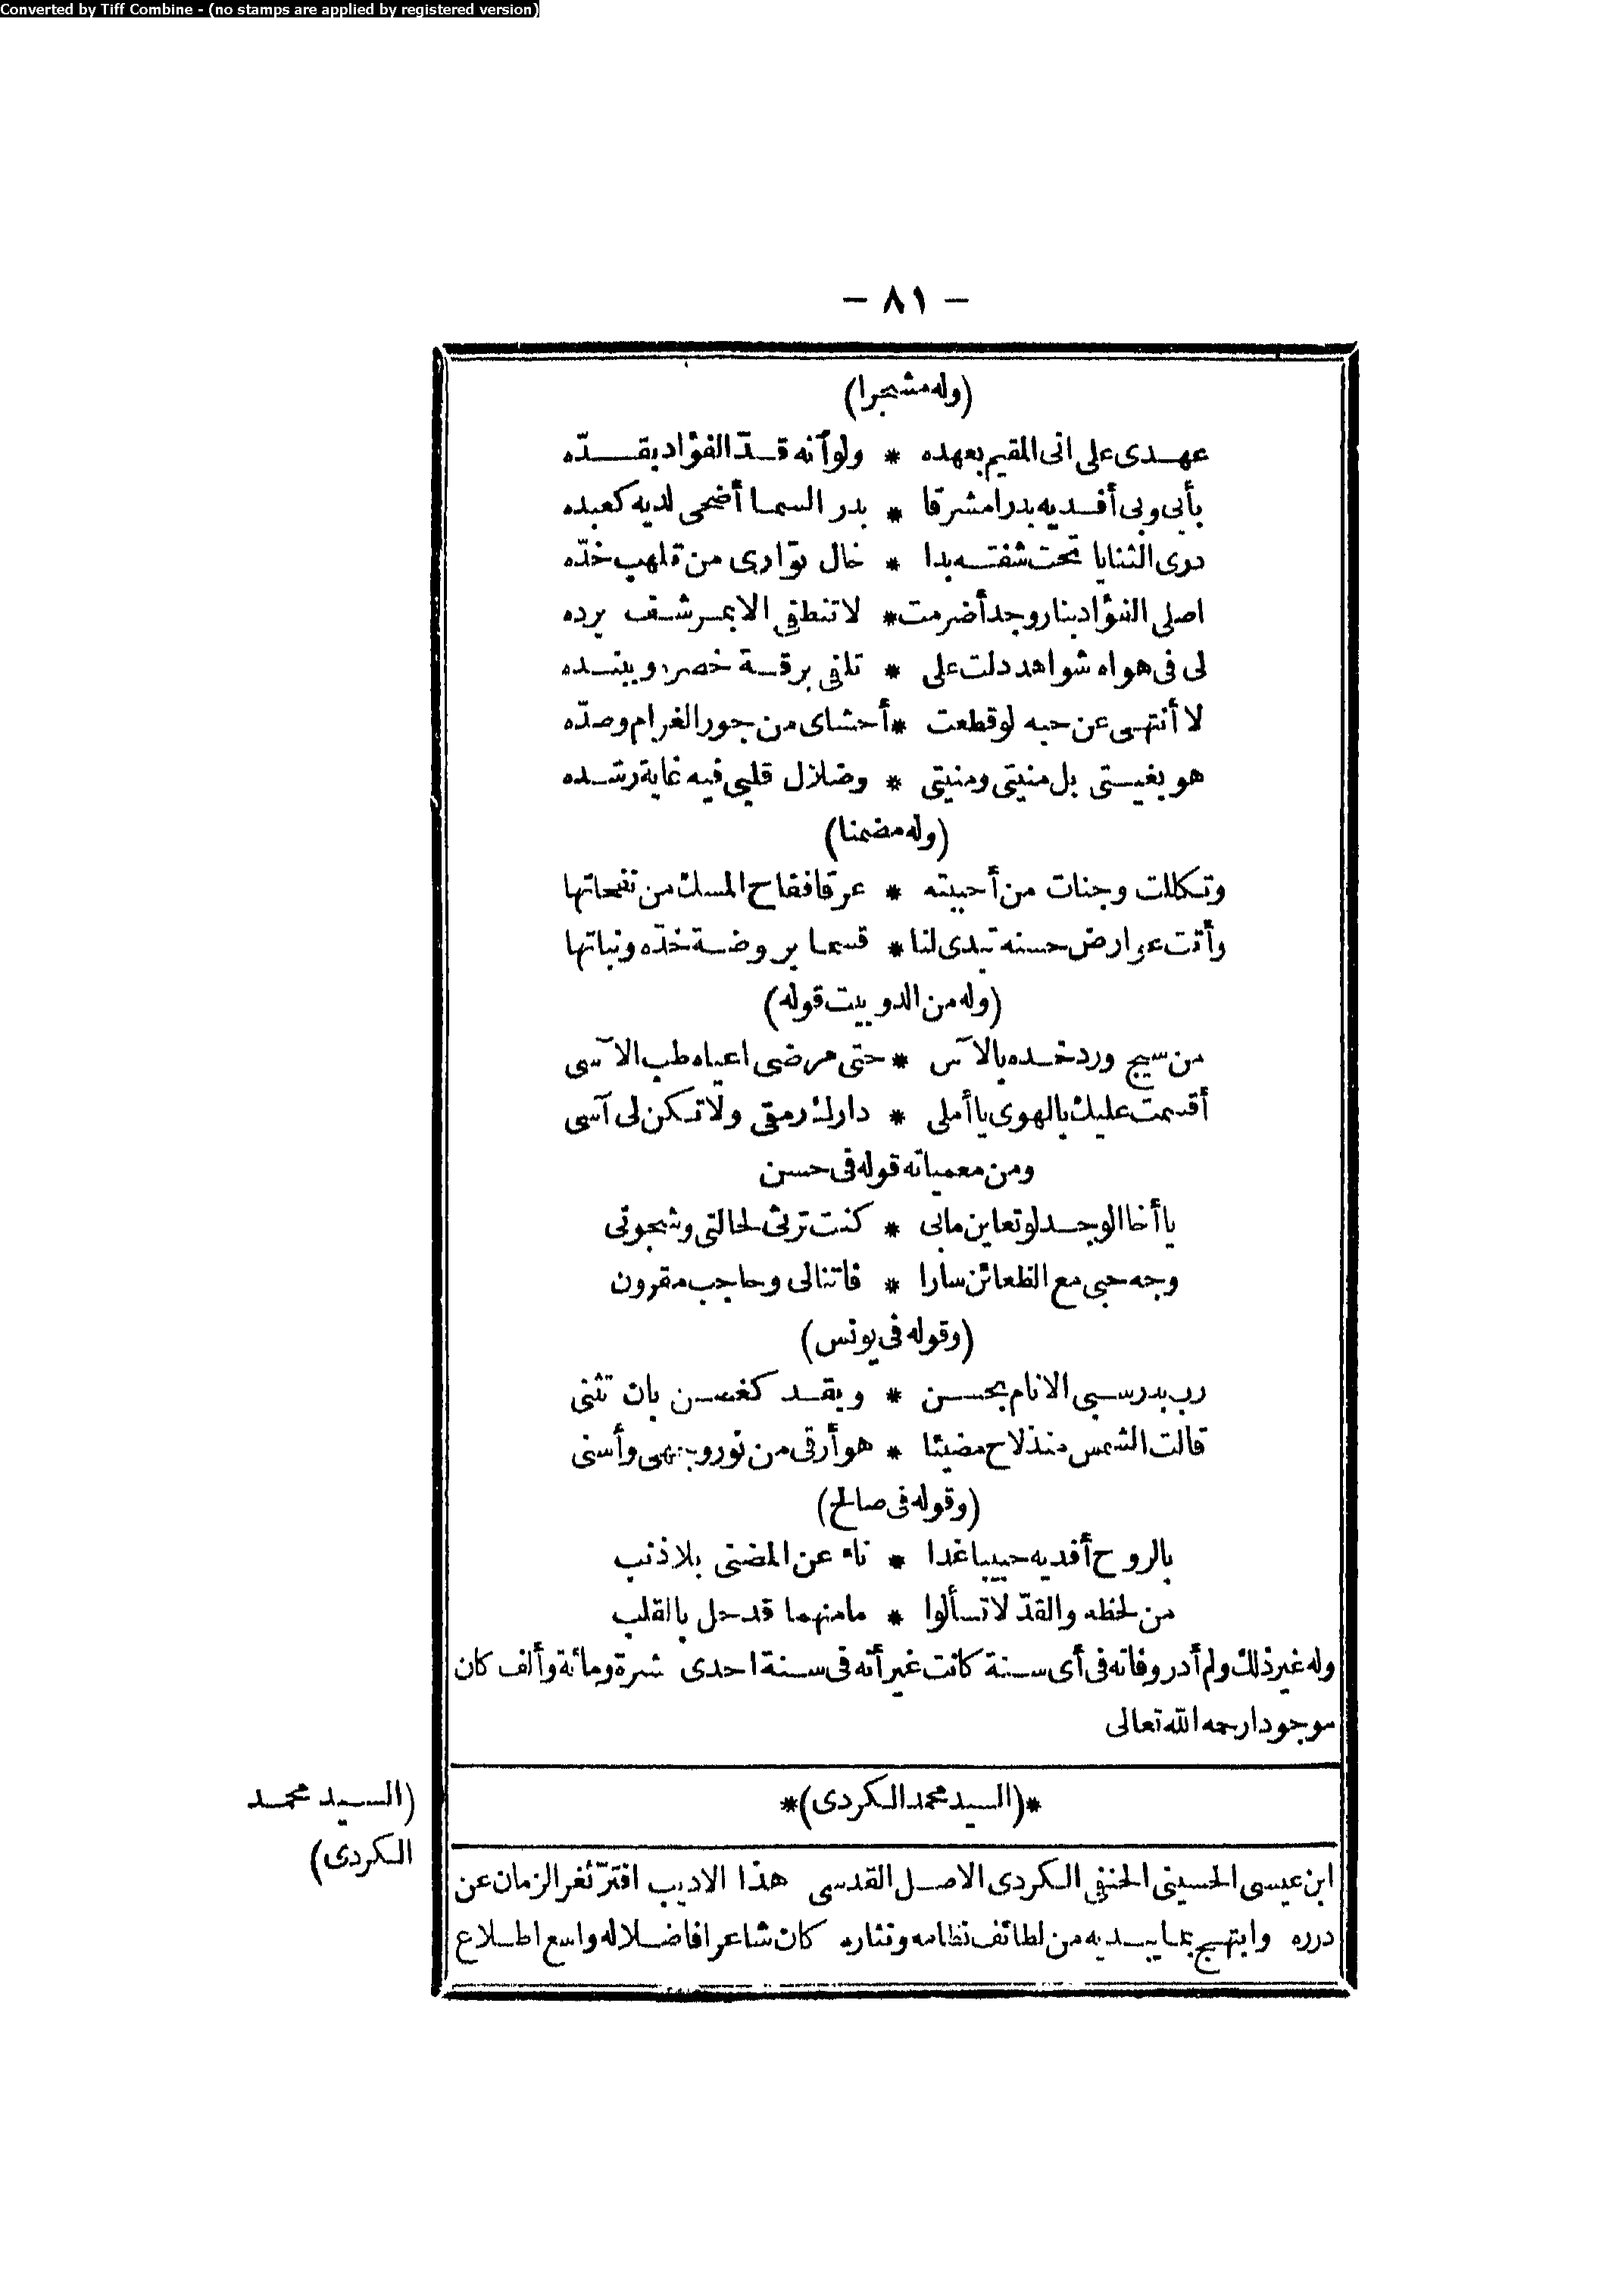 Converted by Tiff Combine - (no stamps are applied by registered version)
- ٨١ -
(وله مشجرا)
عهدى على انى المقيم بعهده * ولو آنه قدّ الفؤاد بقدّه
بأبى وبى أفديه بدرا مشرقا * بدر السما أضحى لديه كعبده
درى الثنايا تحت شفته بدا * خال توّارى من تلهب خدّه
اصلى الفؤاد بنار وجد أضرمت * لا تنطفى الا بمرشف برده
لى فى هواه شواهد دلت على * تلفى برقة خصره وببنده
لا أنتهى عن حبه لو قطعت * أحشاى من جور الغرام وصدّه
هو بغيتى بل منيتى ومنيتى * وضلال قلبى فيه غاية رشده
(وله مضمنا)
وتكللت وجنات من أحببته * عرقا ففاح المسك من نفحاتها
وأتت عوارض حسنه تبدى لنا * قسما بروضة خدّه ونباتها
(وله من الدوبيت قوله)
من سيج ورد خده بالآس * حتى مرضى اعياه طب الآسى
أقسمت عليك بالهوى يا أملى * دارك رمقى ولا تكن لى آسى
ومن معمياته قوله فى حسن
يا أخا الوجد لو تعاين مابى * كنت ترثى لحالتى وشجونى
وجه حبى مع الظعائن سارا * فاتنا لى وحاجب مقرون
(وقوله فى يونس)
رب بدر سبى الانام بحسن * وبقد كغصن بان تثنى
قالت الشمس منذ لاح مضيئا * هو أرقى من نور وجهى وأسنى
(وقوله فى صالح)
بالروح أفديه حبيبا غدا * ناء عن المضنى بلا ذنب
من لحظه والقدّ لا تسألوا * مامنهما قد حل بالقلب
وله غير ذلك ولم أدر وفاته فى أى سنة كانت غير أنه فى سنة احدى عشرة ومائة وألف كان
موجودا رحمه الله تعالى
*(السيد محمد الكردى)*
(السيد محمد
الكردى)
ابن عيسى الحسينى الحنفى الكردى الاصل القدسى هذا الاديب افترّ ثغر الزمان عن
درره وابتهج بما يبديه من لطائف نظامه ونثاره كان شاعرا فاضلا له واسع اطلاع